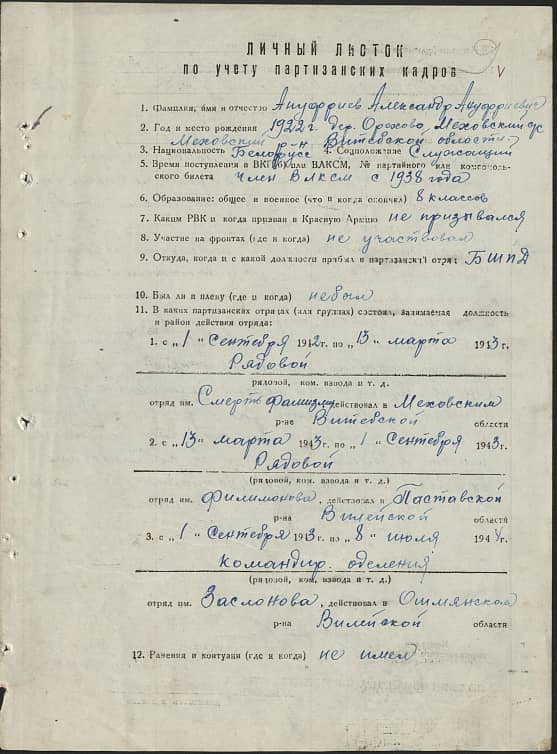 ЛИЧНЫЙ ЛИСТОК
по учету партизанских кадров
1. Фамилия, имя и отчество Ануфриев Александр Ануфриевич
2. Год и место рождения 1922 г. дер. Орехово, Меховский с/с
Меховский р-н Витебской области
3. Национальность Белорусс 4. Соцположение Служащий
5. Время поступления в ВКП(б) или ВЛКСМ, № партийного или комсомоль-
ского билета член ВЛКСМ с 1938 года
6. Образование: общее и военное (что и когда окончил) 8 классов
7. Каким РВК и когда призван в Красную Армию не призывался
8. Участие на фронтах (где и когда) не участвовал
9. Откуда, когда и с какой должности прибыл в партизанский отряд БШПД
10. Был ли в плену (где и когда) небыл
11. В каких партизанских отрядах (или группах) состоял, занимаемая должность
и район действия отряда:
1. с „1" Сентября 1942 г. по „13" марта 1943 г.
Рядовой
рядовой, ком. взвода и т. д.
отряд им. Смерть фашизму действовал в Меховским
р-не Витебской области
2. с „13" марта 1943 г. по „1" Сентября 1943 г.
Рядовой
(рядовой, ком. взвода и т. д.)
отряд им. Филимонова, действовал в Паставской
р-на Вилейской области
3. с „1" Сентября 1943 г. по „8" июля 1944 г.
командир. оделения
(рядовой, ком. взвода и т. д.)
отряд им. Заслонова, действовал в Ошмянском
р-на Вилейской области
12. Ранения и контузии (где и когда) не имел